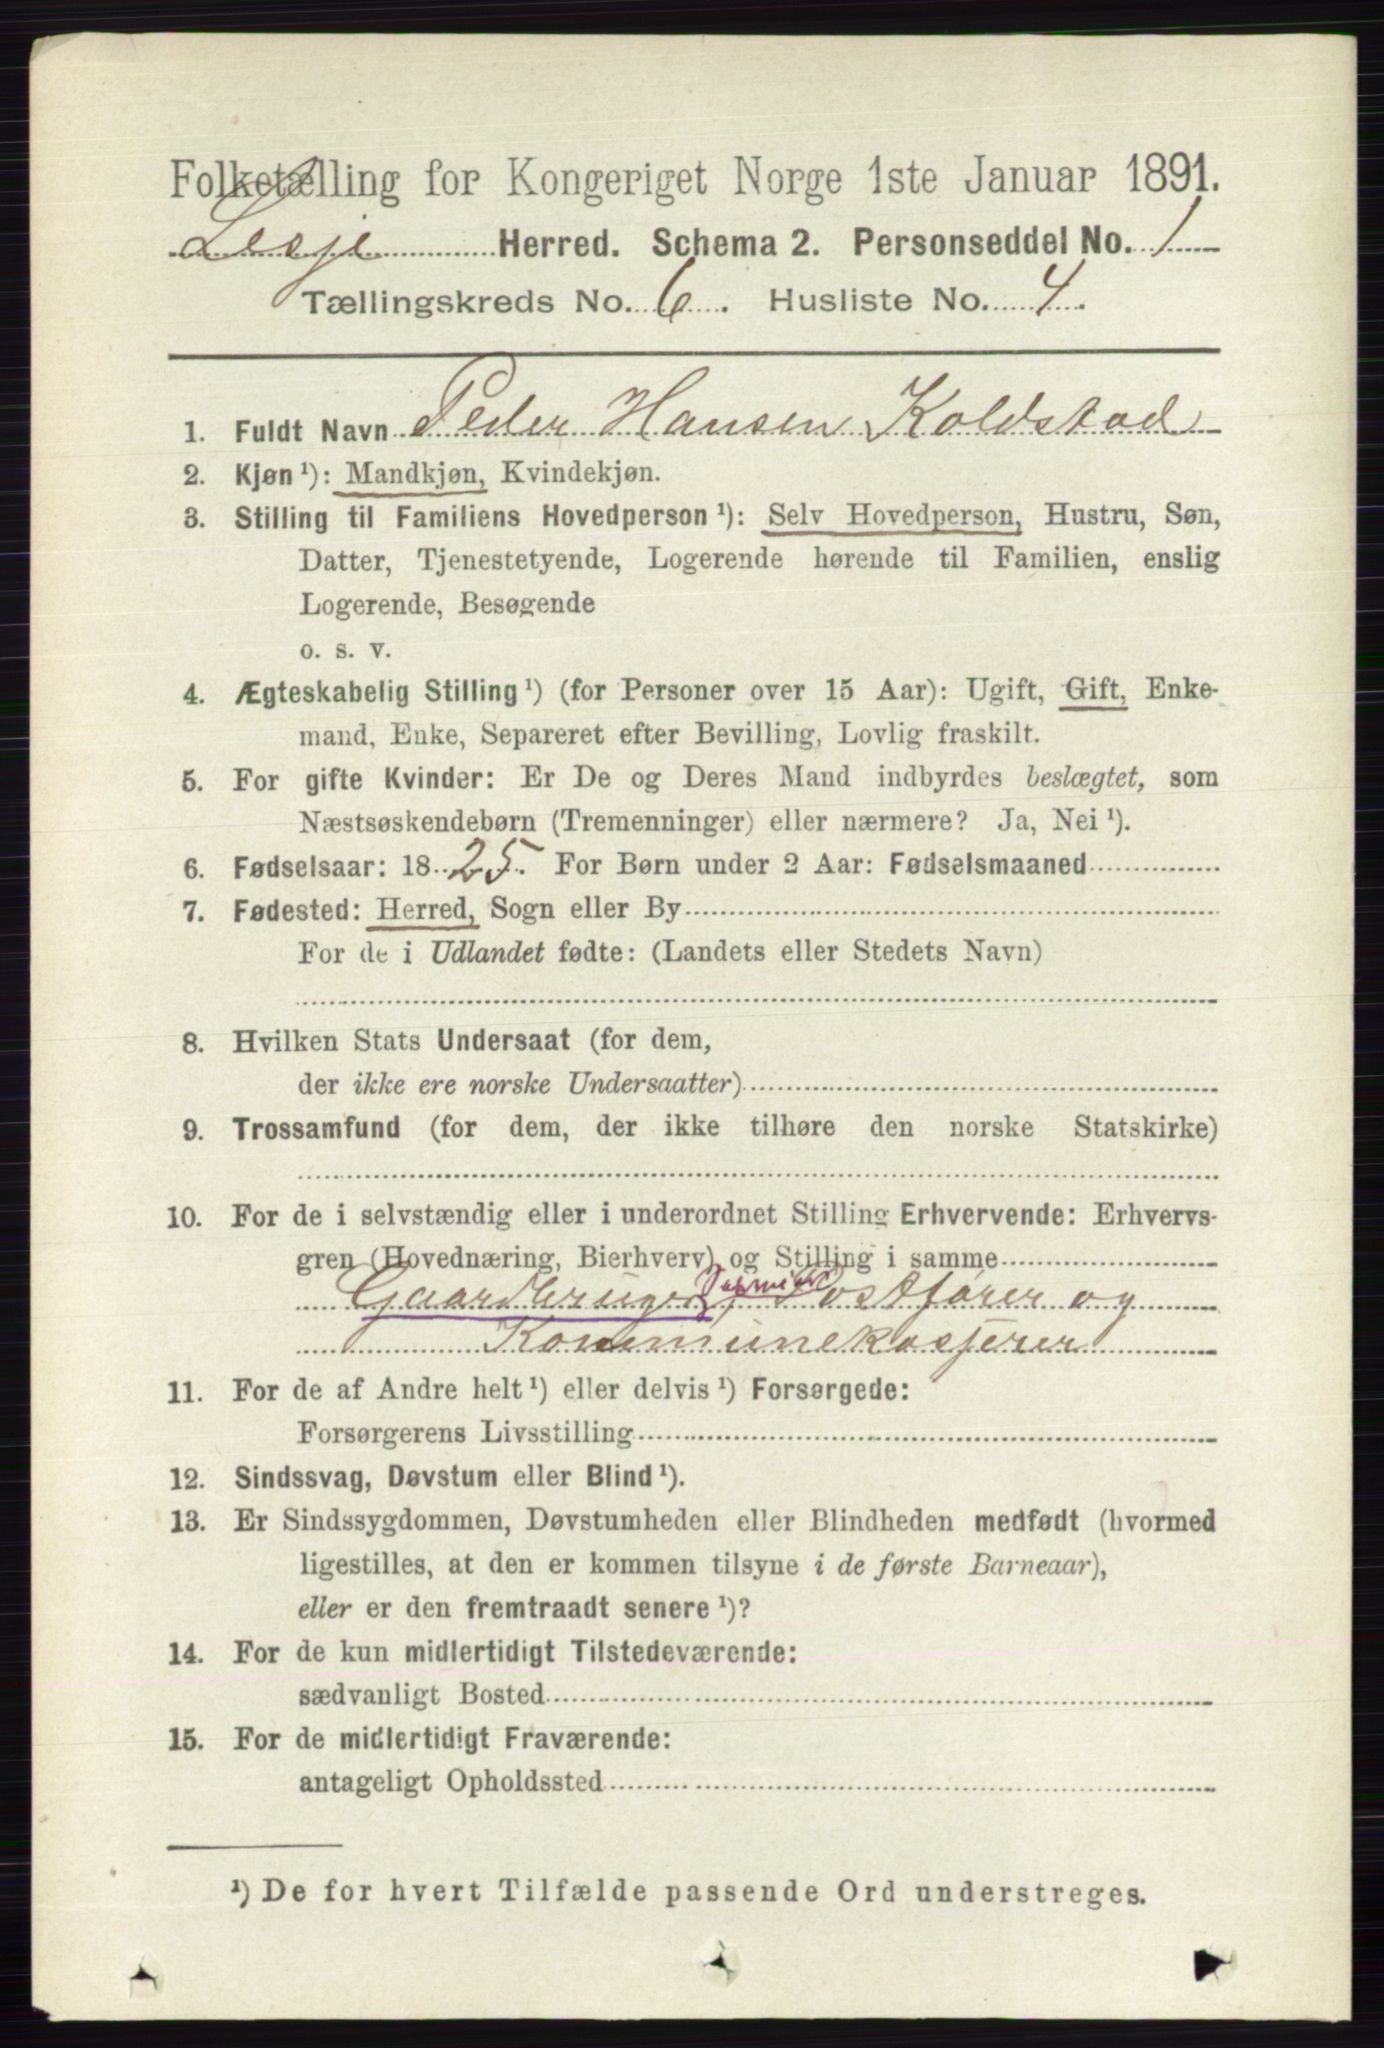 Folketælling for Kongeriget Norge 1ste Januar 1891.
Lesje Herred. Schema 2. Personseddel No. 1
Tællingskreds No. 6. Husliste No. 4.
1. Fuldt Navn Peder Hansen Koldstad
2. Kjøn ¹): Mandkjøn, Kvindekjøn.
3. Stilling til Familiens Hovedperson ¹): Selv Hovedperson, Hustru, Søn,
Datter, Tjenestetyende, Logerende hørende til Familien, enslig
Logerende, Besøgende
o. s. v.
4. Ægteskabelig Stilling ¹) (for Personer over 15 Aar): Ugift, Gift, Enke-
mand, Enke, Separeret efter Bevilling, Lovlig fraskilt.
5. For gifte Kvinder: Er De og Deres Mand indbyrdes beslægtet, som
Næstsøskendebørn (Tremenninger) eller nærmere? Ja, Nei ¹).
6. Fødselsaar: 1825. For Børn under 2 Aar: Fødselsmaaned
7. Fødested: Herred, Sogn eller By
For de i Udlandet fødte: (Landets eller Stedets Navn)
8. Hvilken Stats Undersaat (for dem,
der ikke ere norske Undersaatter)
9. Trossamfund (for dem, der ikke tilhøre den norske Statskirke)
10. For de i selvstændig eller i underordnet Stilling Erhvervende: Erhvervs-
gren (Hovednæring, Bierhverv) og Stilling i samme
Gaardbruger, Postfører og
Kommunekasserer
11. For de af Andre helt ¹) eller delvis ¹) Forsørgede:
Forsørgerens Livsstilling
12. Sindssvag, Døvstum eller Blind ¹).
13. Er Sindssygdommen, Døvstumheden eller Blindheden medfødt (hvormed
ligestilles, at den er kommen tilsyne i de første Barneaar),
eller er den fremtraadt senere ¹)?
14. For de kun midlertidigt Tilstedeværende:
sædvanligt Bosted
15. For de midlertidigt Fraværende:
antageligt Opholdssted
¹) De for hvert Tilfælde passende Ord understreges.